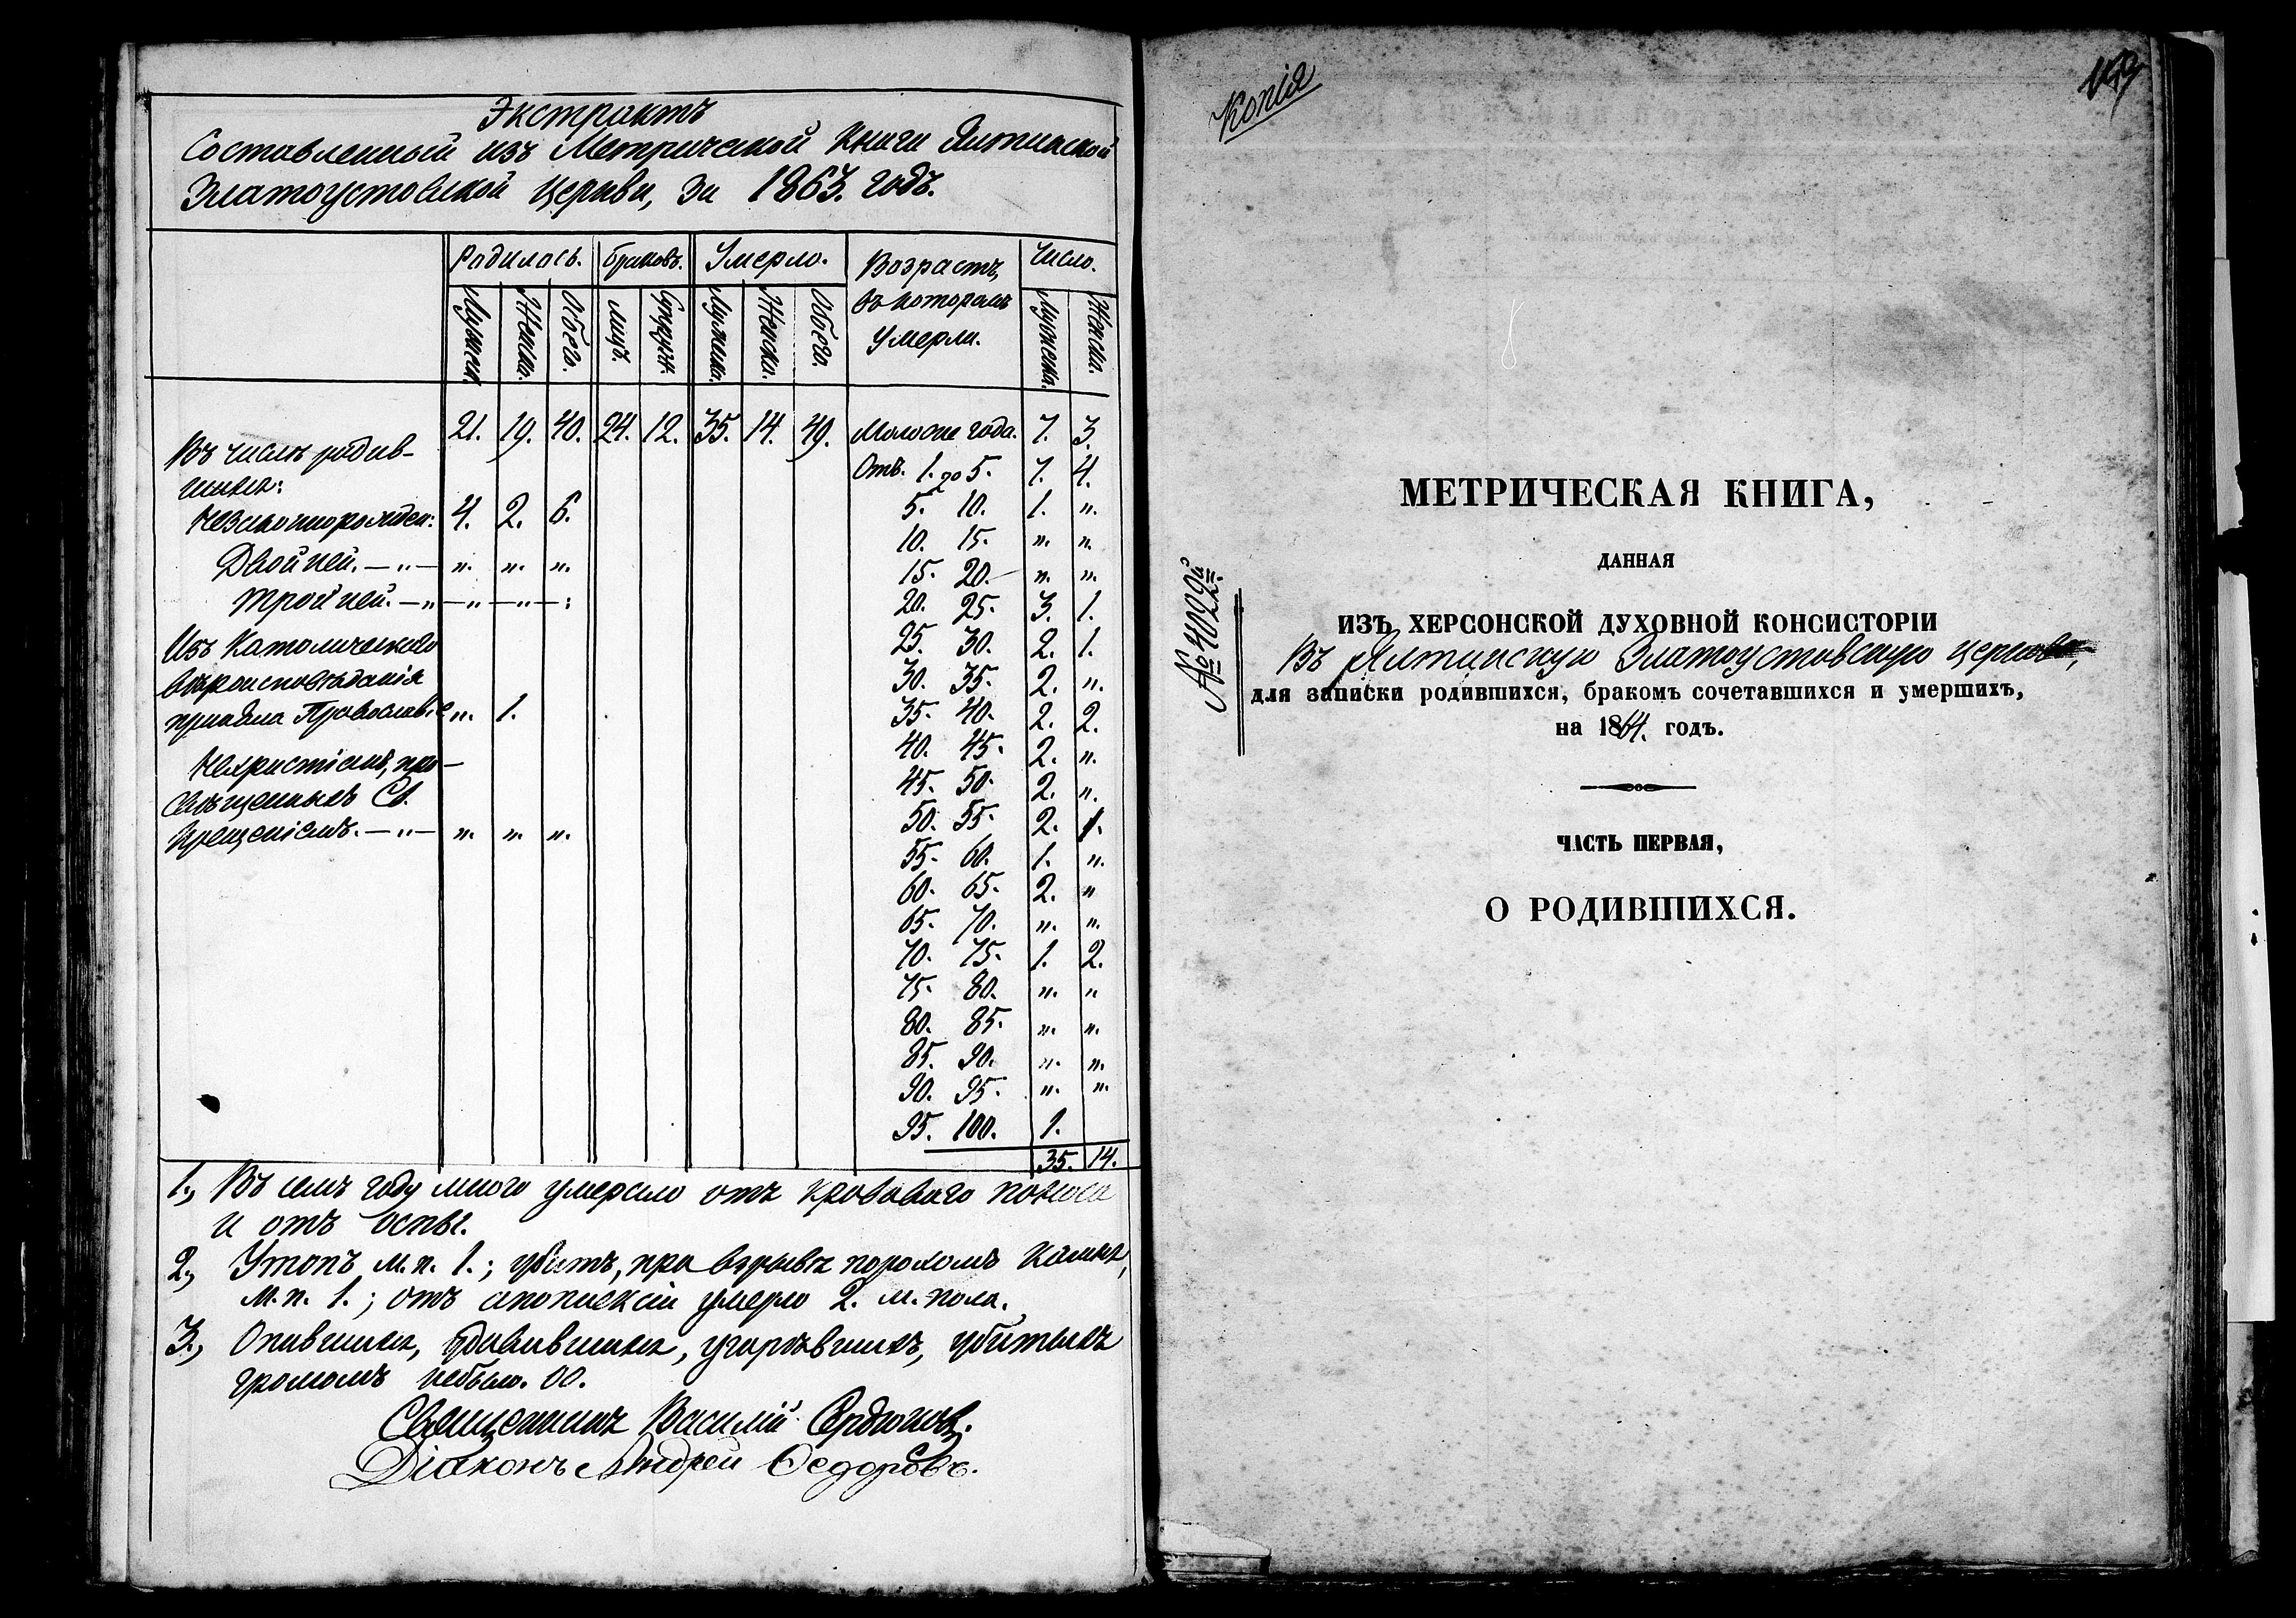 Экстрактъ
Составленный изъ Метрической Книги Ялтинской
Златоустовской Церкви, За 1863. годъ.
Родилось. Браковъ. Умерло. Возрастъ, въ которомъ Умерли. Число.
Мужеск. Женска. Обоего. лицъ. Супруж. Мужеска. Женска. Обоего. Мужеска. Женска.
21. 19. 40. 24. 12. 35. 14. 49. Моложе года. 7. 3.
Въ числѣ родив-
шихся:
Отъ. 1. до 5. 7. 4.
Незаконнорожден: 4. 2. 6.
5. 10. 1. „.
10. 15. „. „.
Двойней. — „ — „. „. „.
15. 20. „. „.
Тройней. — „ — „ — „ — :
20. 25. 3. 1.
Изъ Католическаго
25. 30. 2. 1.
вѣроисповѣданія
30. 35. 2. „.
приняла Православіе „. 1.
35. 40. 2. 2.
40. 45. 2. „.
Нехристіанъ, про-
45. 50. 2. „.
свѣщенныхъ Св.
50. 55. 2. 1.
Крещеніемъ. — „ — „. „. „.
55. 60. 1. „.
60. 65. 2. „
65. 70. „. „.
70. 75. 1. 2.
75. 80. „. „
80. 85. „. „.
85. 90. „. „.
90. 95. „. „.
95. 100. 1.
35. 14.
1., Въ семъ году много умерло отъ кроваваго поноса
и отъ оспы.
2., Утопъ м. п. 1.; убитъ, при взрывѣ порохомъ Камня,
м. п. 1.; отъ апоплексіи умерло 2. м. пола.
3., Опившихся, удавившихся, угорѣвшихъ, убитыхъ
громомъ небыло. 00.
Священникъ Василій Сердюковъ.
Діаконъ Андрей Ѳедоровъ.
Копія
МЕТРИЧЕСКАЯ КНИГА,
ДАННАЯ
ИЗЪ ХЕРСОНСКОЙ ДУХОВНОЙ КОНСИСТОРІИ
Въ Ялтинскую Златоустовскую церковь,
для записки родившихся, бракомъ сочетавшихся и умершихъ,
на 1864. годъ.
ЧАСТЬ ПЕРВАЯ,
О РОДИВШИХСЯ.